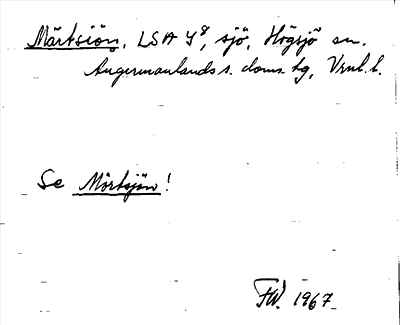 Märtsiön, LSA Y8, sjö, Högsjö sn.
Ångermanlands s. doms. tg, Vrnl. l.
Se Mörtsjön!
FW. 1967